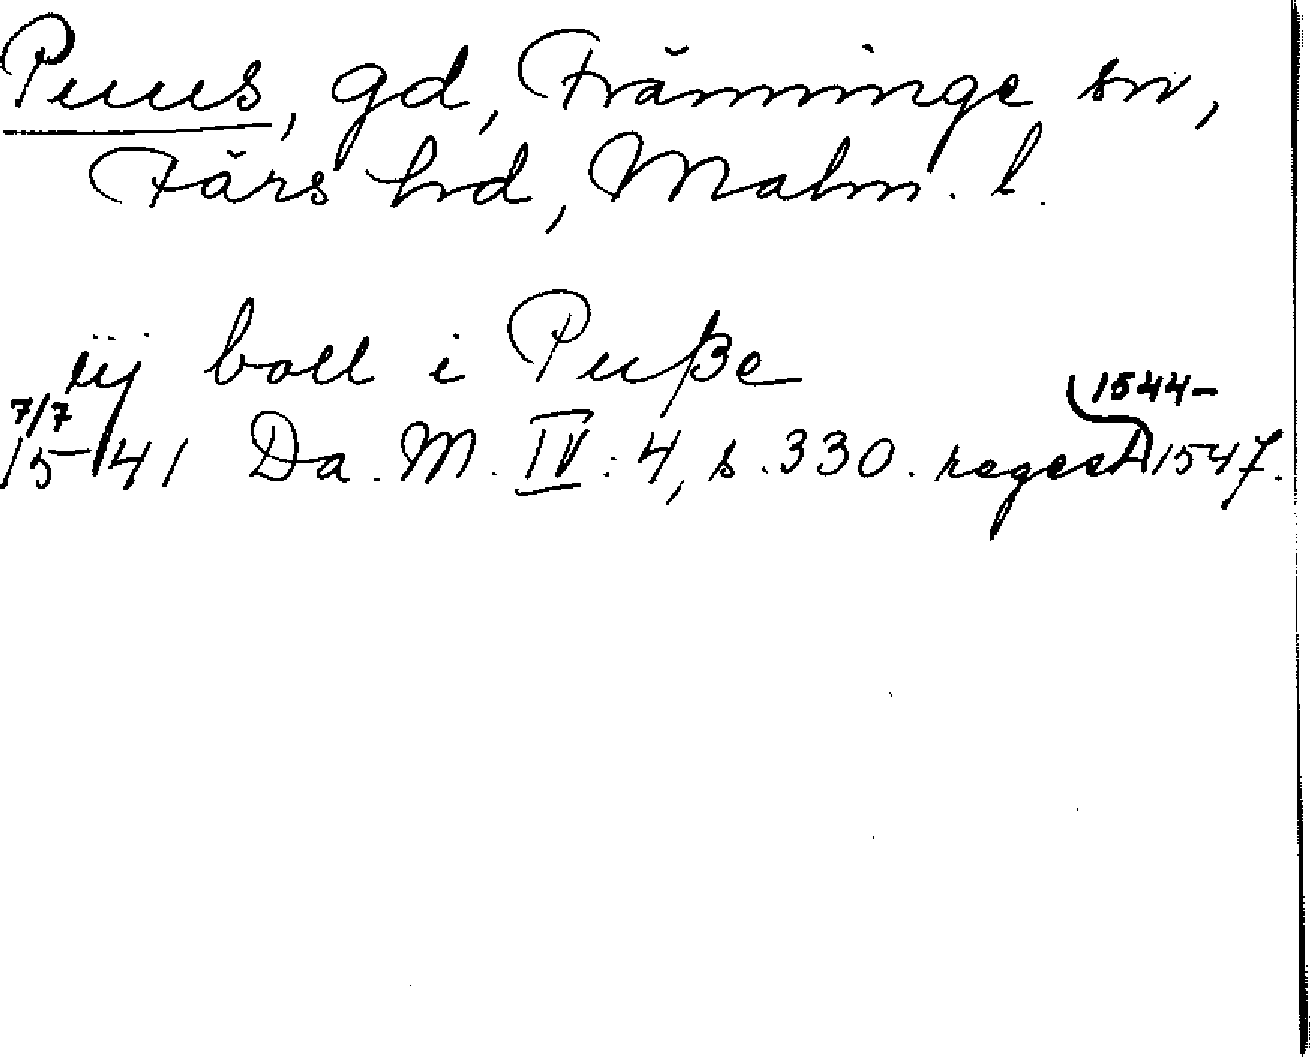 Puus, gd, Tränninge sn,
Färs hd, Malm. l.
iij boll i Puße
7/7
1541 Da. M. IV: 4, s. 330. regest 1544-1547.